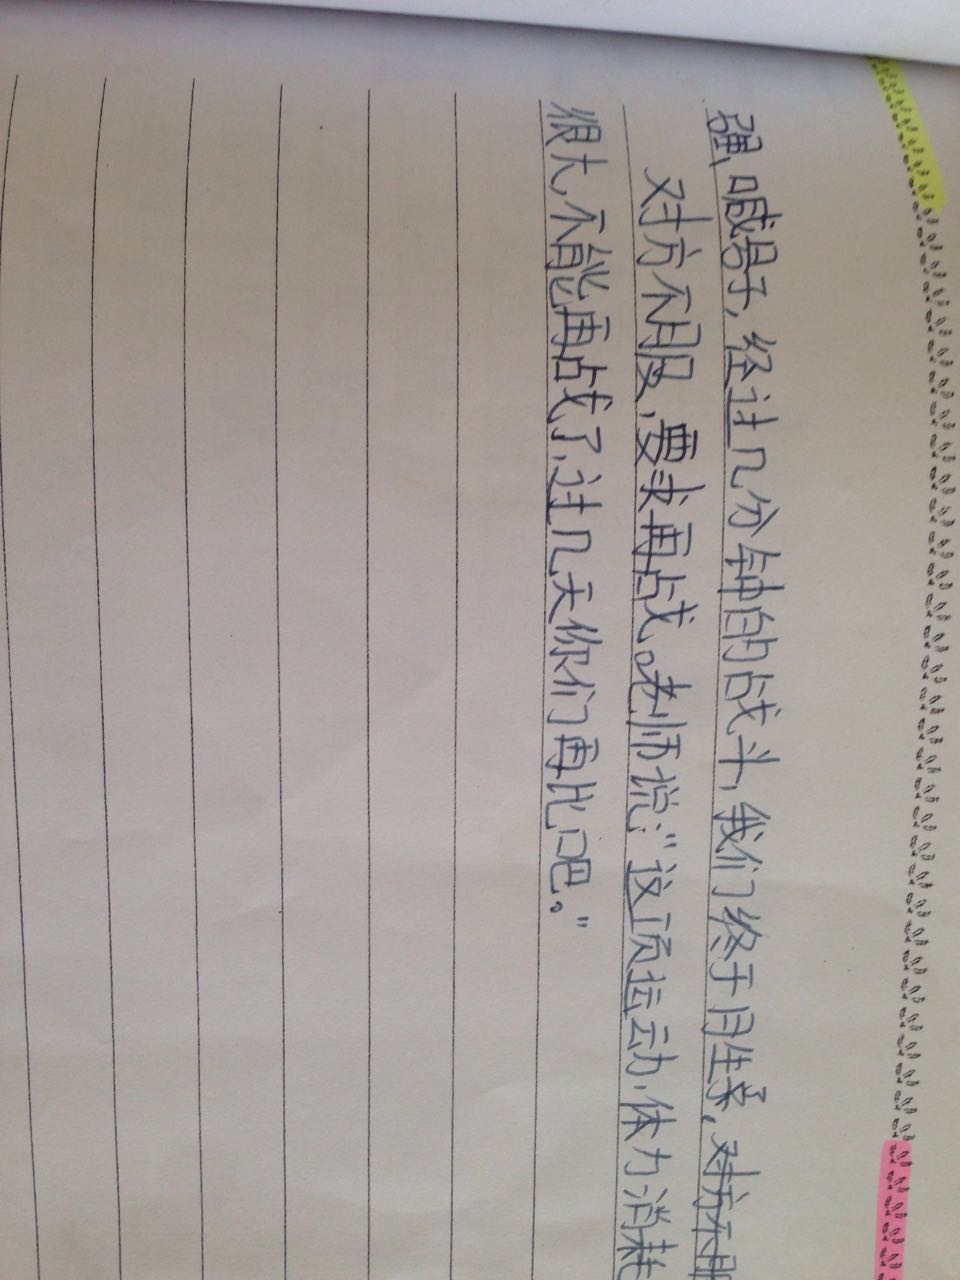 强,喊号子,经过几分钟的战斗,我们终于胜
对方不服,要求再战。老师说:“这项运动,体力消耗
很大,不能再战了,过几天你们再比吧。”